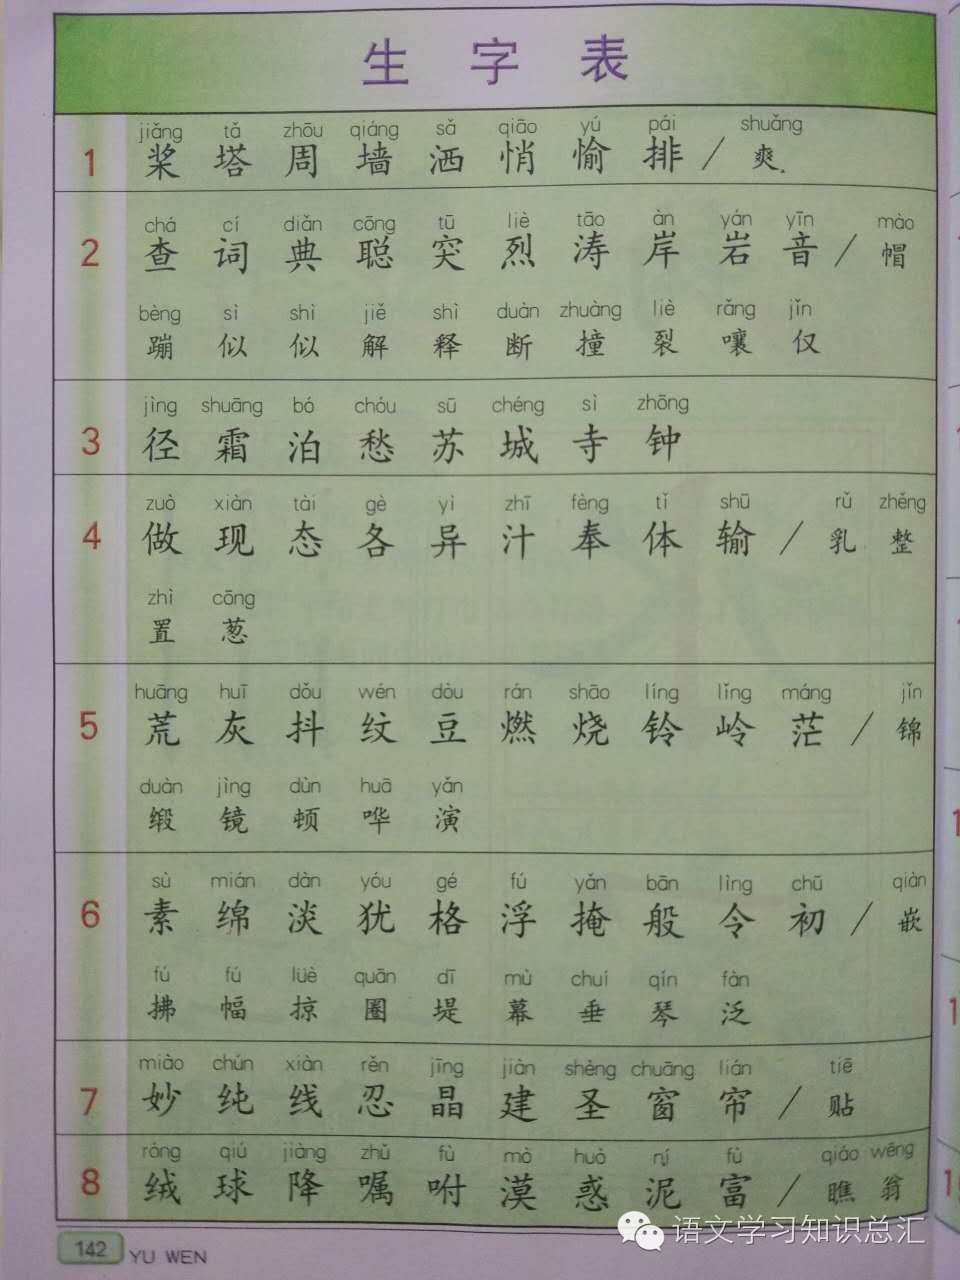 生字表
jiǎng tǎ zhōu qiáng sǎ qiāo yú pái shuǎng
1 桨 塔 周 墙 洒 悄 愉 排 / 爽
chá cí diǎn cōng tū liè tāo àn yán yīn mào
2 查 词 典 聪 突 烈 涛 岸 岩 音 / 帽
bèng sì shì jiě shì duàn zhuàng liè rǎng jǐn
蹦 似 似 解 释 断 撞 裂 嚷 仅
jìng shuāng bó chóu sū chéng sì zhōng
3 径 霜 泊 愁 苏 城 寺 钟
zuò xiàn tài gè yì zhī fèng tǐ shū rǔ zhěng
4 做 现 态 各 异 汁 奉 体 输 / 乳 整
zhì cōng
置 葱
huāng huī dǒu wén dòu rán shāo líng lǐng máng jǐn
5 荒 灰 抖 纹 豆 燃 烧 铃 岭 茫 / 锦
duàn jìng dùn huā yǎn
缎 镜 顿 哗 演
sù mián dàn yóu gé fú yǎn bān lìng chū qiàn
6 素 绵 淡 犹 格 浮 掩 般 令 初 / 嵌
fú fú lüè quān dī mù chuí qín fàn
拂 幅 掠 圈 堤 幕 垂 琴 泛
miào chún xiàn rěn jīng jiàn shèng chuāng lián tiē
7 妙 纯 线 忍 晶 建 圣 窗 帘 / 贴
róng qiú jiàng zhǔ fù mò huò ní fù qiáo wēng
8 绒 球 降 嘱 咐 漠 惑 泥 富 / 瞧 翁
142 YU WEN
语文学习知识总汇